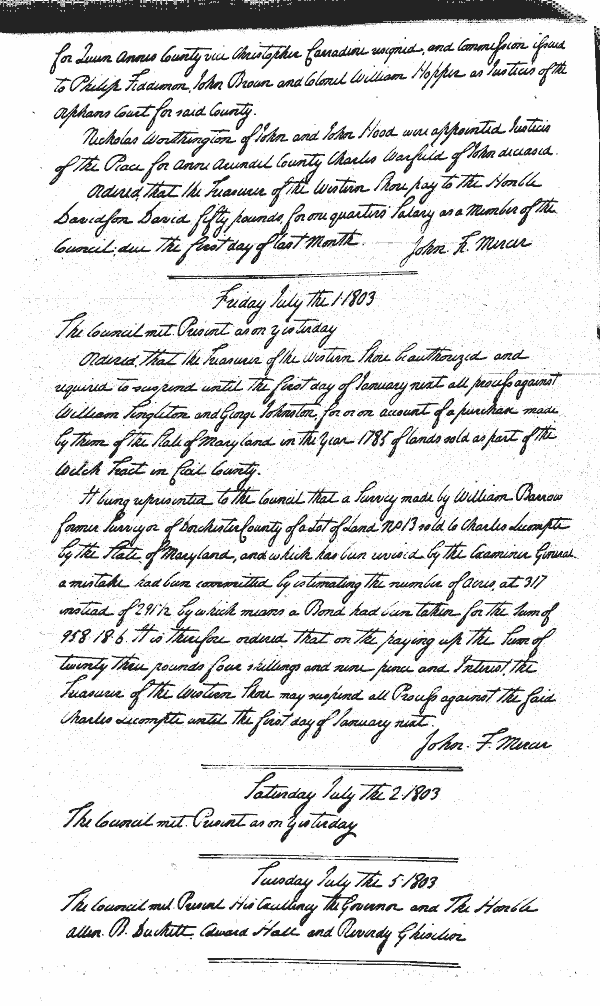 for Queen Annes County vice Christopher Carradine resigned, and Commission issued
to Philip Feddemon, John Brown and Colonel William Hopper as Justices of the
Orphans Court for said County.
Nicholas Worthington of John and John Hood were appointed Justices
of the Peace for Anne Arundel County Charles Warfield of John deceased.
Ordered, that the Treasurer of the Western Shore pay to the Honble
Davidson David fifty pounds, for one quarters Salary as a Member of the
Council, due the first day of last Month.
John F. Mercer
Friday July the 1. 1803
The Council met Present as on yesterday
Ordered, that the Treasurer of the Western Shore be authorized and
required to suspend until the first day of January next all process against
William Singleton and George Johnston, for or on account of a purchase made
by them of the State of Maryland in the Year 1785 of lands sold as part of the
Welch Tract in Cecil County.
It being represented to the Council that a Survey made by William Barrow
former Surveyor of Dorchester County of a Lot of Land No 13 sold to Charles Lecompte
by the State of Maryland, and which has been revised by the Examiner General
a mistake had been committed by estimating the number of Acres, at 317
instead of 291½ by which means a Bond had been taken for the Sum of
958.18.6. It is therefore ordered that on the paying up the Sum of
twenty three pounds four shillings and nine pence and Interest the
Treasurer of the Western Shore may suspend all Process against the said
Charles Lecompte until the first day of January next.
John. F. Mercer
Saturday July the 2. 1803
The Council met. Present as on yesterday
Tuesday July the 5. 1803
The Council met Present His Excellency the Governor and The Honble
Allen B. Duckett, Edward Hall and Reverdy Ghiselin